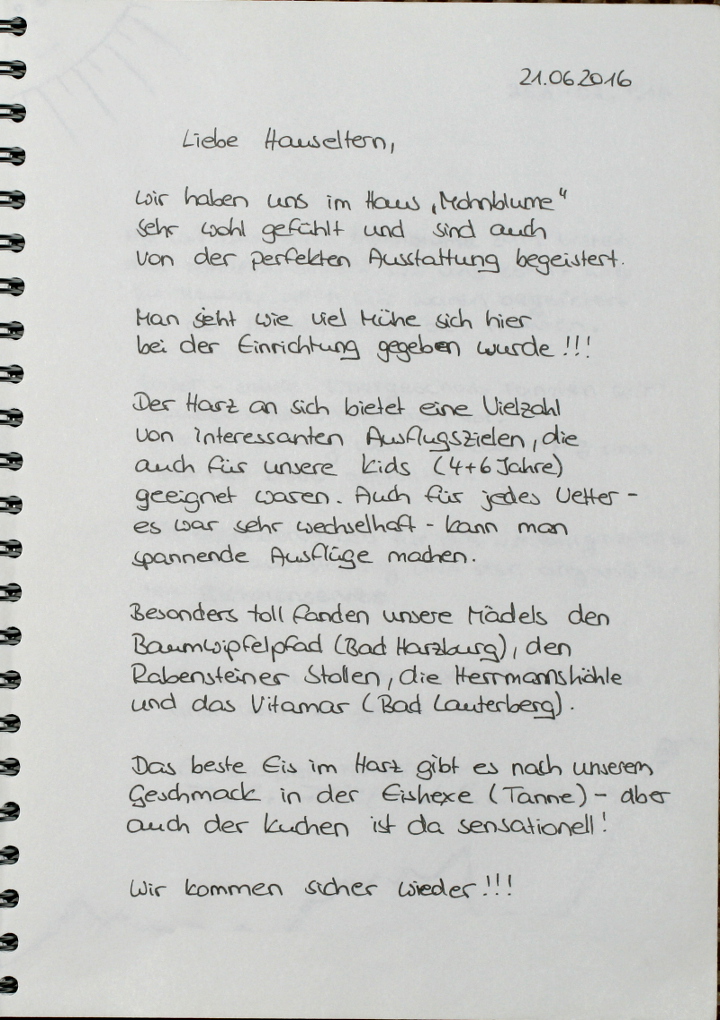 21.06.2016
Liebe Hauseltern,
wir haben uns im Haus „Mohnblume“
sehr wohl gefühlt und sind auch
von der perfekten Ausstattung begeistert.
Man sieht wie viel Mühe sich hier
bei der Einrichtung gegeben wurde !!!
Der Harz an sich bietet eine Vielzahl
von interessanten Ausflugszielen, die
auch für unsere Kids (4+6 Jahre)
geeignet waren. Auch für jedes Wetter -
es war sehr wechselhaft - kann man
spannende Ausflüge machen.
Besonders toll fanden unsere Mädels den
Baumwipfelpfad (Bad Harzburg), den
Rabensteiner Stollen, die Herrmannshöhle
und das Vitamar (Bad Lauterberg).
Das beste Eis im Harz gibt es nach unserem
Geschmack in der Eishexe (Tanne) - aber
auch der Kuchen ist da sensationell!
Wir kommen sicher wieder!!!